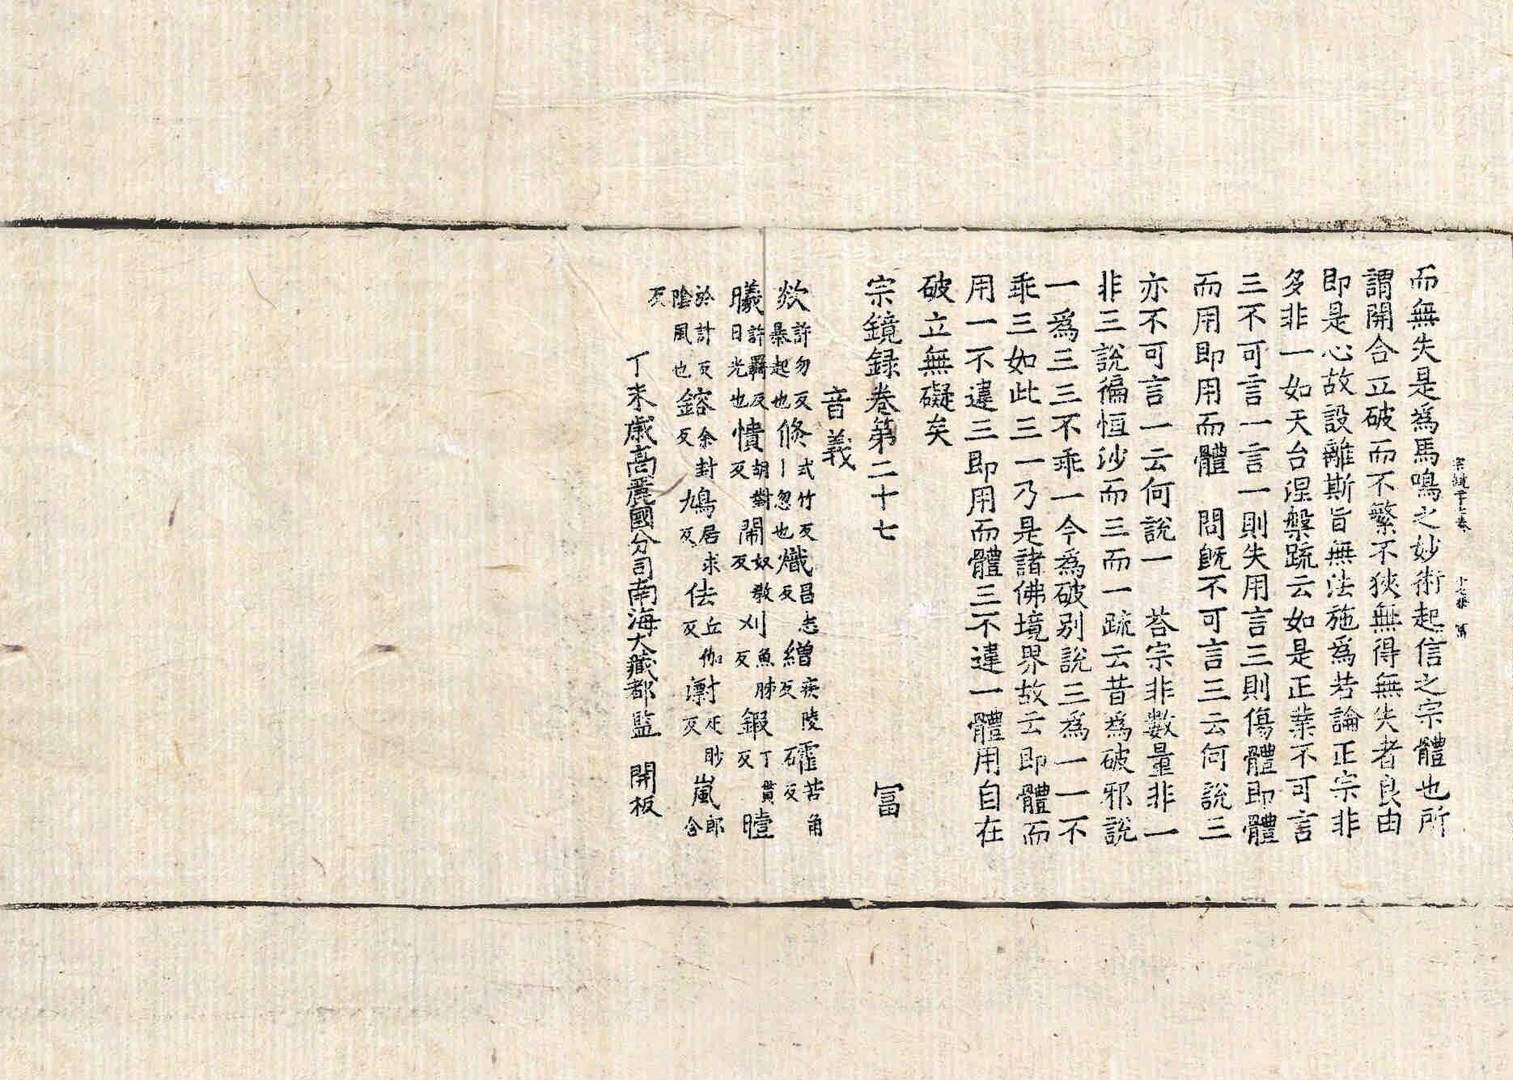 宗鏡二十七卷 十七張 冨
而無失是爲馬鳴之妙術起信之宗體也所
謂開合立破而不繁不狹無得無失者良由
即是心故設離斯旨無法施爲若論正宗非
多非一如天台涅槃疏云如是正葉不可言
三不可言一言一則失用言三則傷體即體
而用即用而體 問旣不可言三云何說三
亦不可言一云何說一 荅宗非數量非一
非三說徧恒沙而三而一疏云昔爲破邪說
一爲三三不乖一今爲破別說三爲一一不
乖三如此三一乃是諸佛境界故云即體而
用一不違三即用而體三不違一體用自在
破立無礙矣
宗鏡録卷第二十七 冨
音義
欻許勿反暴起也倏式竹反丨忽也熾昌志反繒疾陵反確苦角反
曦許羈反日光也憒胡對反鬧奴敎反刈魚肺反鍜丁貫反曀
於計反陰風也鎔余封反鳩居求反佉丘伽反嵐郎含
反
丁未歲高麗國分司南海大藏都監 開板